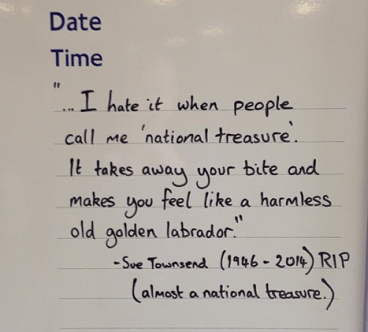 Date
Time
"... I hate it when people
call me 'national treasure'.
It takes away your bite and
makes you feel like a harmless
old golden labrador."
-Sue Townsend (1946-2014) RIP
(almost a national treasure.)